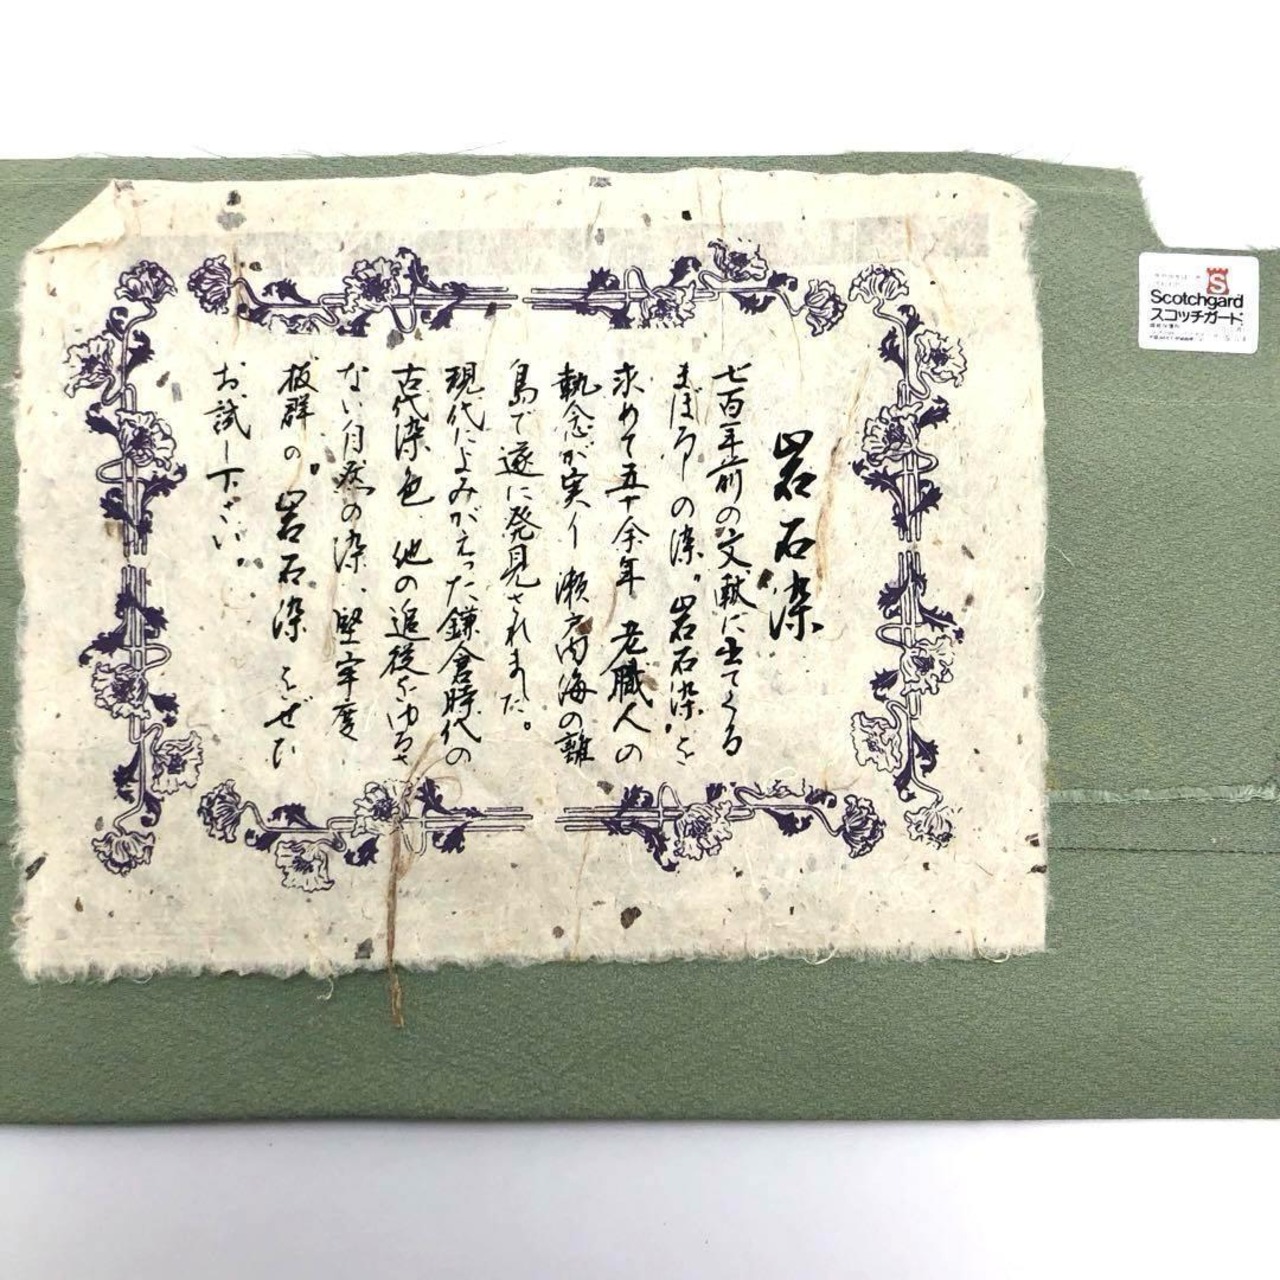 岩石染
七百年前の文献に出てくる
まぼろしの染。岩石染。を
求めて五十余年 老職人の
執念が実り 瀬戸内海の離
島で遂に発見されました。
現代によみがえった鎌倉時代の
古代染色、他の追従をゆるさ
ない自然の染、堅牢度
抜群の。岩石染 をぜひ
お試し下さい。
S
Scotchgard
スコッチガード